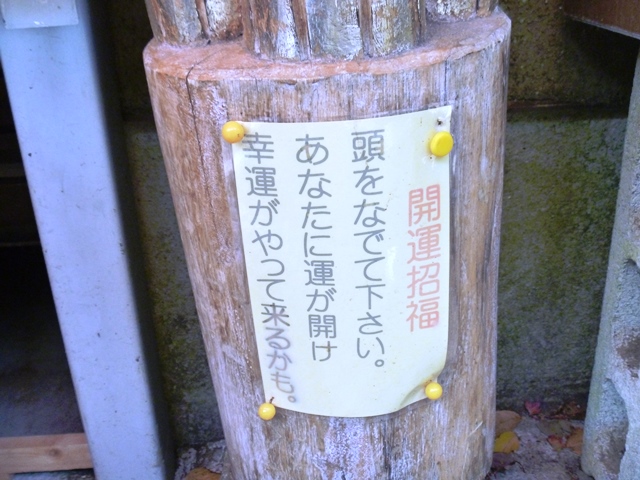 開運招福
頭をなでて下さい。
あなたに運が開け
幸運がやって来るかも。